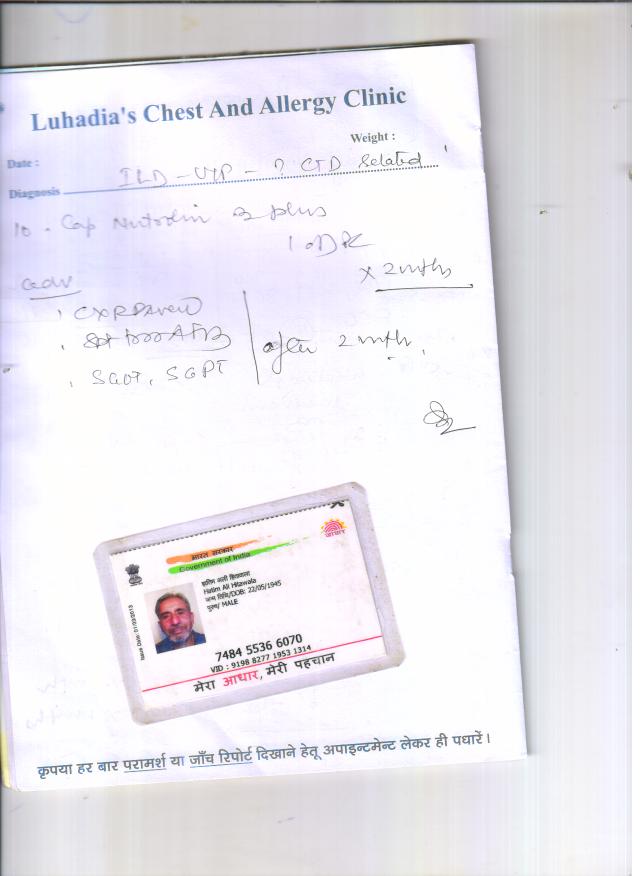 Luhadia's Chest And Allergy Clinic
Weight :
Date :
Diagnosis ILD - UIP - ? CTD related
10. Cap plus
1 OD PC
x 2 mths
adv
CXR PA view
SGOT, SGPT
after 2 mth.
भारत सरकार
Government of India
हातिम अली हितावाला
Hatim Ali Hitawala
जन्म तिथि/DOB: 22/05/1945
पुरुष/ MALE
आधार
7484 5536 6070
VID : 9198 8277 1953 1314
मेरा आधार, मेरी पहचान
कृपया हर बार परामर्श या जाँच रिपोर्ट दिखाने हेतू अपाइन्टमेन्ट लेकर ही पधारें।